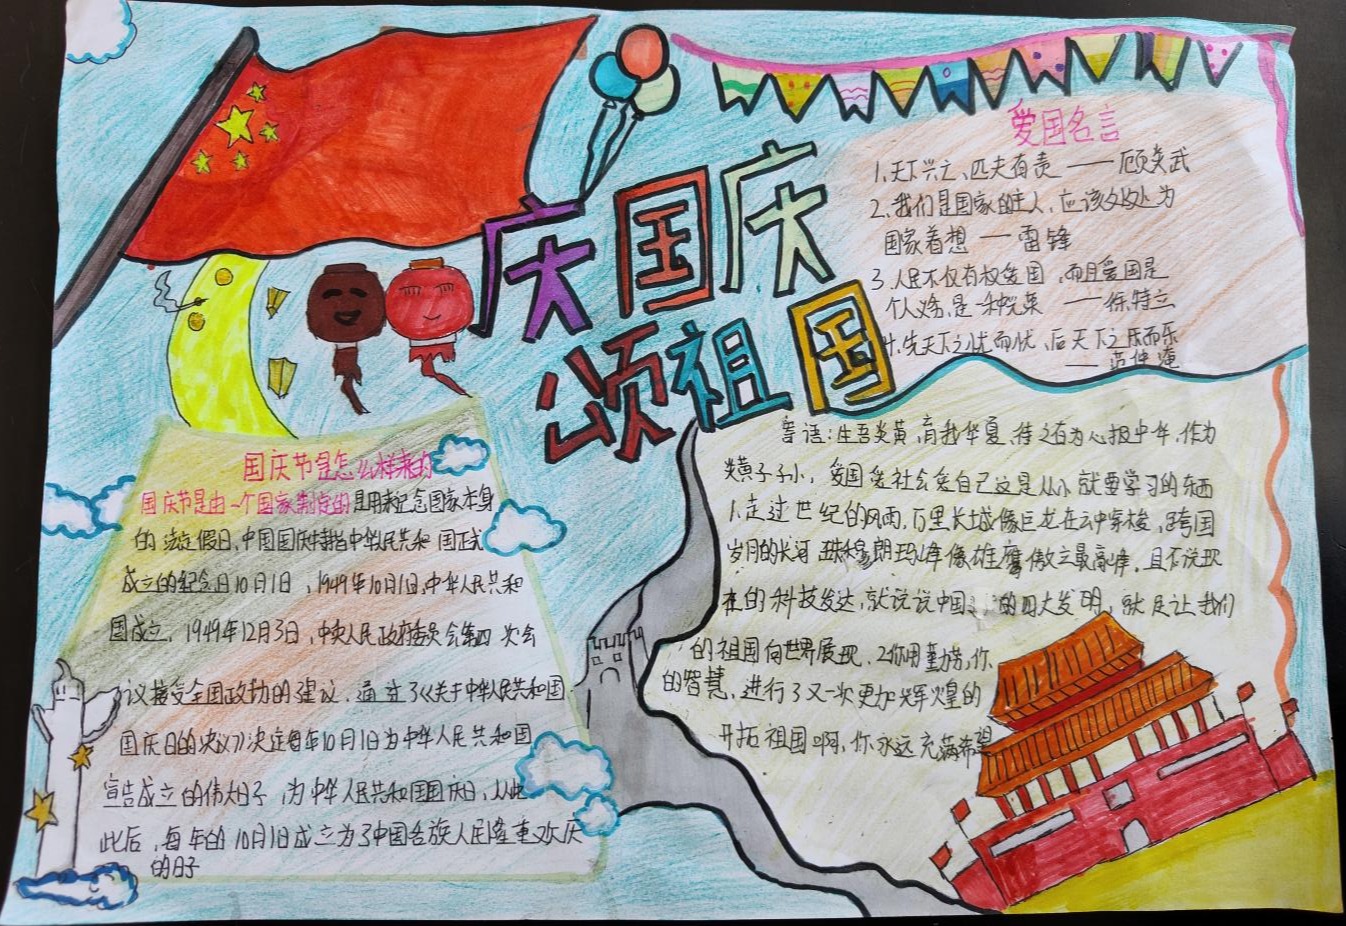 庆国庆
颂祖国
爱国名言
1.天下兴亡、匹夫有责——顾炎武
2.我们是国家的主人,应该处处为
国家着想——雷锋
3.人民不仅有权爱国,而且爱国是
个义务,是一种光荣——徐特立
4.先天下之忧而忧,后天下之乐而乐
——范仲淹
国庆节是怎么样来的
国庆节是由一个国家制定的是用来纪念国家本身
的法定假日,中国国庆特指中华民共和国正式
成立的纪念日10月1日,1949年10月1日,中华人民共和
国成立,1949年12月3日,中央人民政府委员会第四次会
议接受全国政协的建议,通过了《关于中华人民共和国
国庆日的决议》决定每年10月1日为中华人民共和国
宣告成立的伟大日子,为中华人民共和国国庆日,从此
此后,每年的10月1日成立为了中国各族人民隆重欢庆
的日子
寄语:生吾炎黄,育我华夏,待之有为必报中华,作为
炎黄子子小,爱国爱社会爱自己这是从小就要学习的东西
1.走过世纪的风雨,万里长城像巨龙在云中穿梭,跨国
岁月的长河珠穆朗玛峰像雄鹰傲立最高峰,且不说现
在的科技发达,就说说中国的四大发明,就足让我们
的祖国向世界展现,2你用勤劳,你
的智慧,进行了又一次更加辉煌的
开拓祖国啊,你永远充满希望